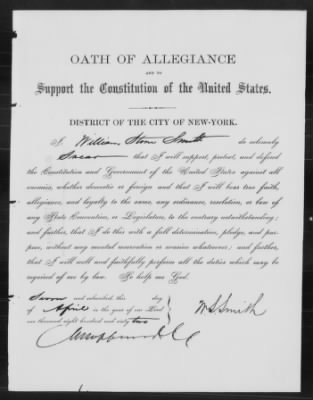 OATH OF ALLEGIANCE
AND TO
Support the Constitution of the United States.
DISTRICT OF THE CITY OF NEW-YORK.
I, William Stone Smith do solemnly
Swear that I will support, protect, and defend
the Constitution and Government of the United States against all
enemies, whether domestic or foreign and that I will bear true faith,
allegiance, and loyalty to the same, any ordinance, resolution, or law of
any State Convention, or Legislature, to the contrary notwithstanding;
and further, that I do this with a full determination, pledge, and pur-
pose, without any mental reservation or evasion whatsoever; and further,
that I will well and faithfully perform all the duties which may be
required of me by law. So help me God.
Sworn and subscribed, this day
of April in the year of our Lord
one thousand eight hundred and sixty two
W S Smith